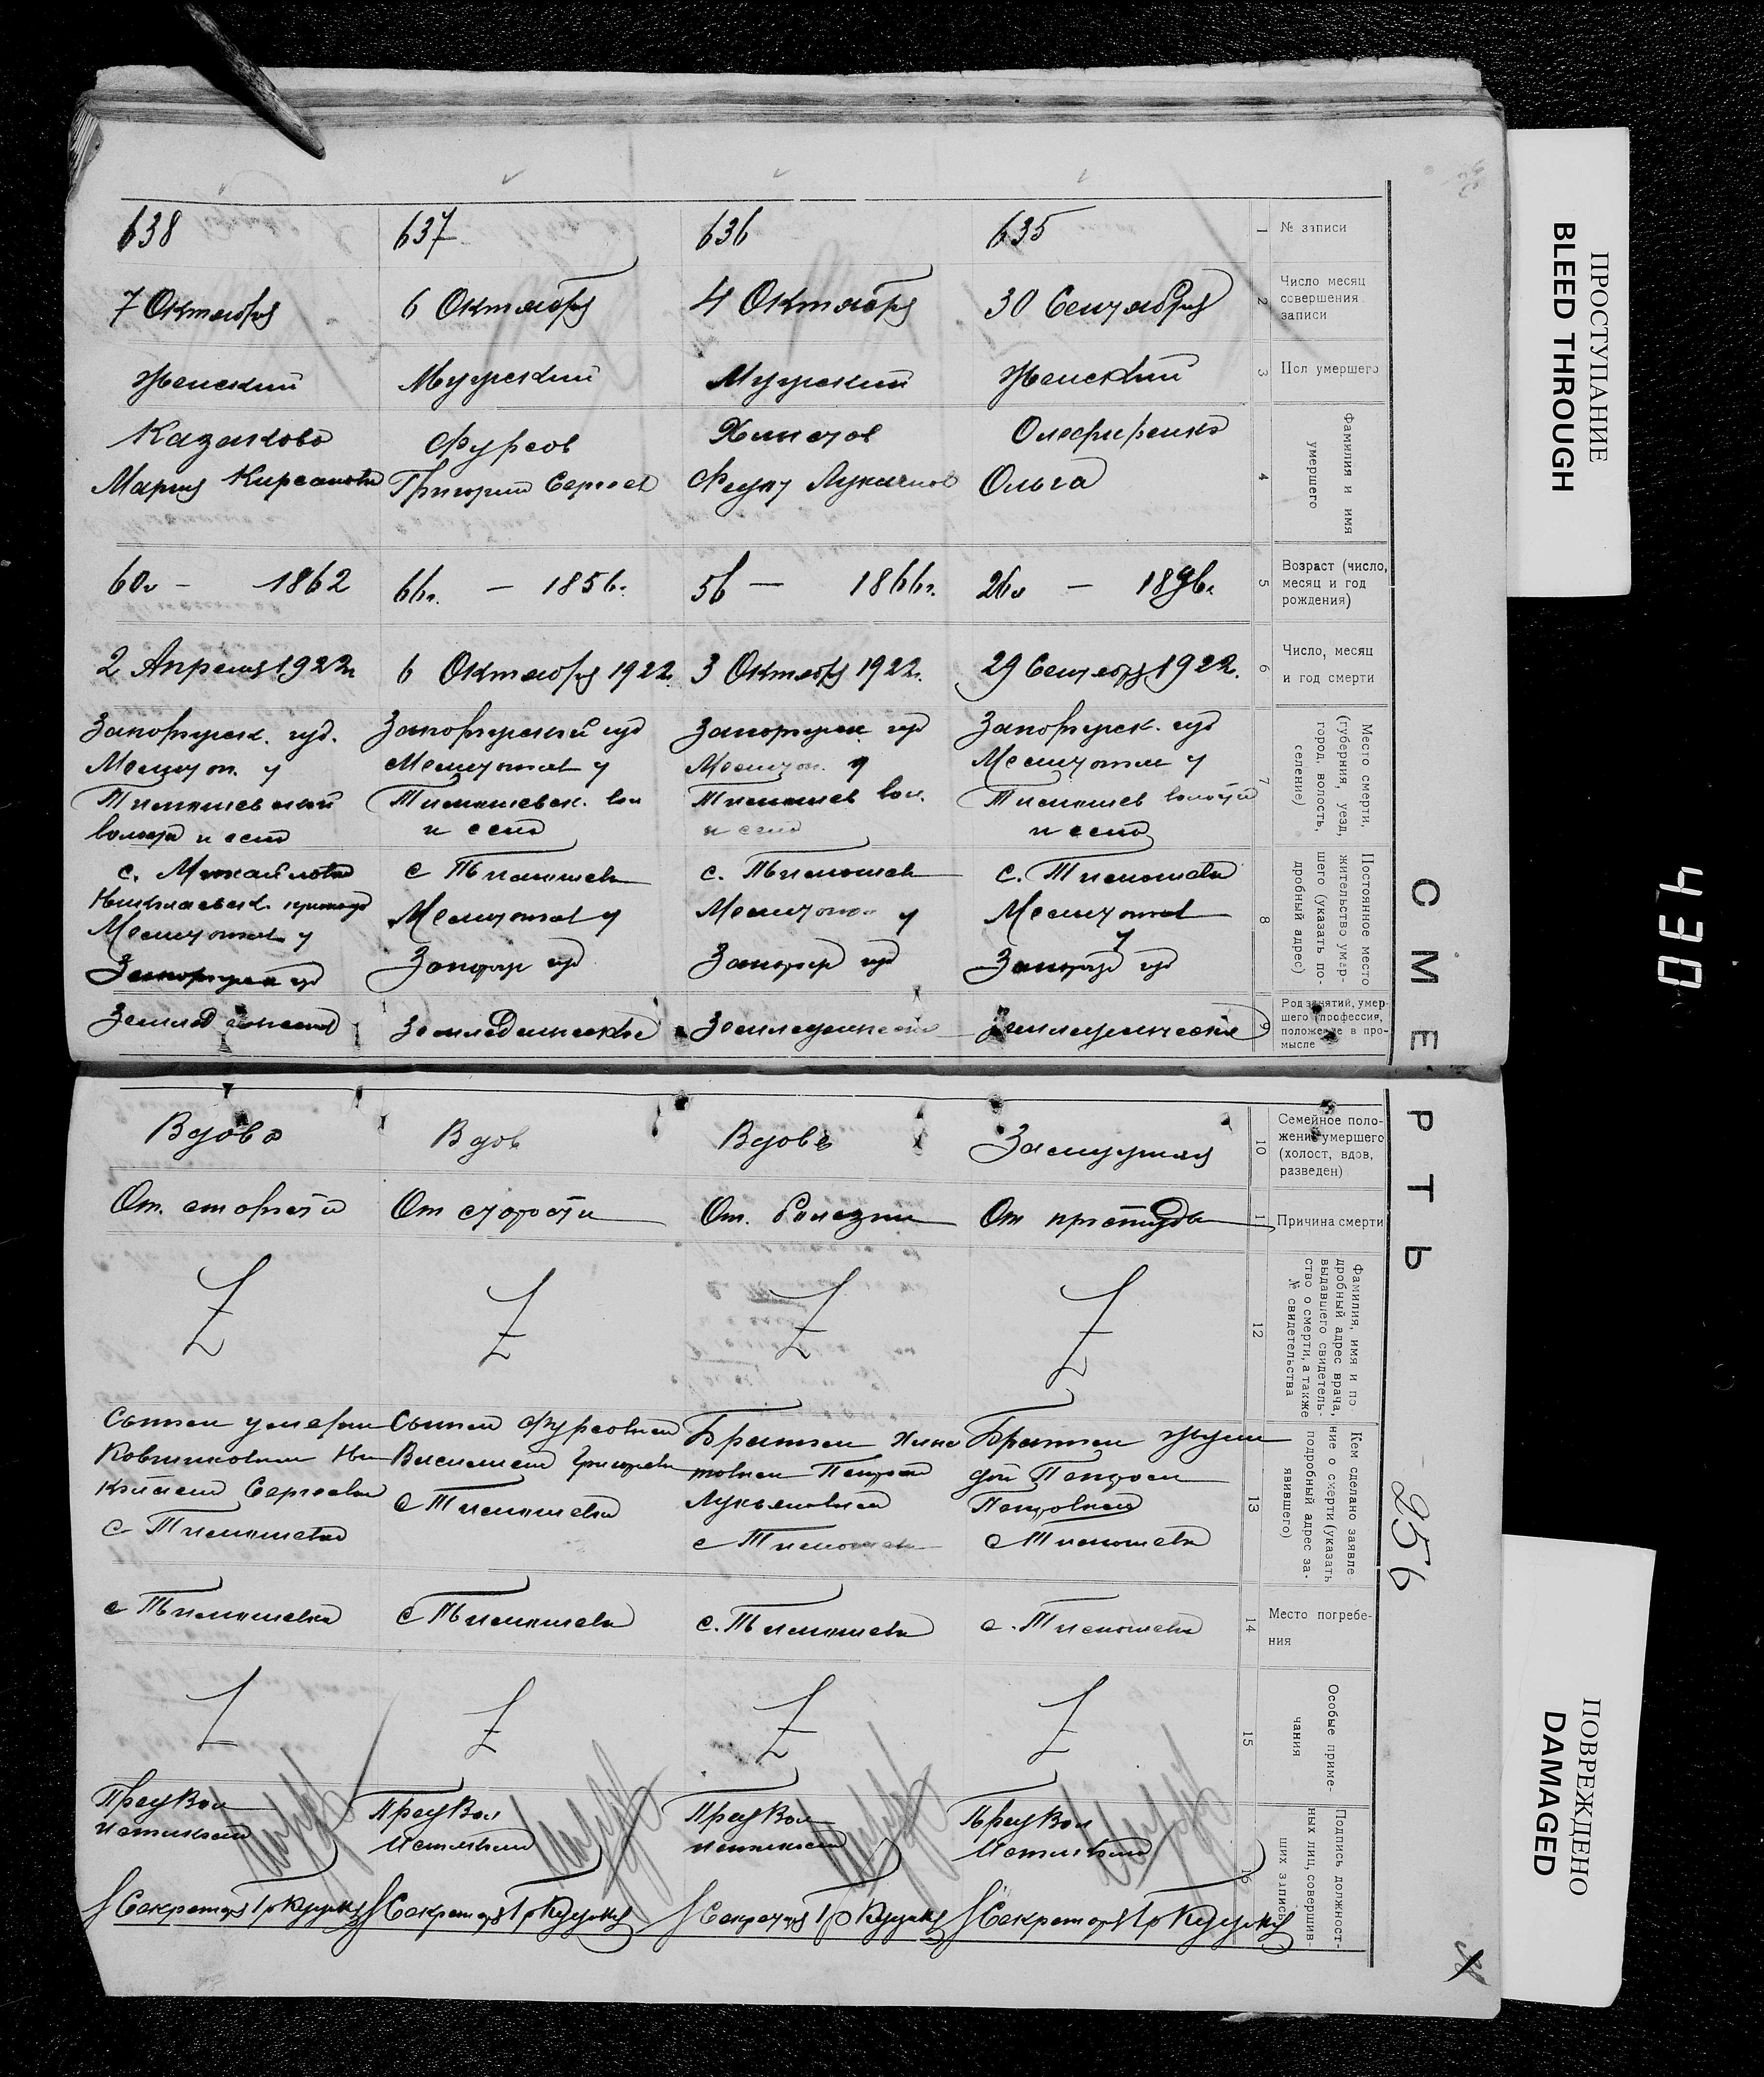 ПРОСТУПАНИЕ
BLEED THROUGH
ПОВРЕЖДЕНО
DAMAGED
430
СМЕРТЬ
256
1 № записи
635
636
637
638
2 Число месяц
совершения
записи
30 Сентября
4 Октября
6 Октября
7 Октября
3 Пол умершего
Женский
Мужский
Мужский
Женский
4 Фамилия и имя
умершего
Олефиренко
Ольга
Фурсов
Григорий Сергеев
Казакова
Мария Кирсанова
5 Возраст (число,
месяц и год
рождения)
26л — 1896г.
56 — 1866г.
66л. — 1856г.
60л — 1862
6 Число, месяц
и год смерти
29 Сентября 1922.
3 Октября 1922.
6 Октября 1922.
2 Апреля 1922г
7 Место смерти,
(губерния, уезд,
город, волость,
селение)
Запорожск. губ
Мелитопол у
Тимошев волости
и село
Запорожск губ
Мелитоп. у
Тимошев вол.
и село
Запорожский губ
Мелитопол у
Тимошевск. вол
и село
Запорожск. губ.
Мелитоп. у
Тимошевский
волости и село
8 Постоянное место
жительство умер-
шего (указать по-
дробный адрес)
с. Тимошевка
Мелитопол
у
Запорож губ
с. Тимошевк
Мелитопо у
Запорож губ
с Тимошевк
Мелитопол у
Запорож губ
с. Михайловка
Мелитопол у
Запорожск губ
9 Род занятий, умер-
шего (профессия,
положение в про-
мысле
Земледелческое
Земледелческо
Земледелческое
10 Семейное поло-
жение умершего
(холост, вдов,
разведен)
Замужняя
Вдове
Вдов
Вдова
11 Причина смерти
От простуды
От. Болезни
От старости
От. старости
12 Фамилия, имя и по
дробный адрес врача,
выдавшего свидетель-
ство о смерти, а также
№ свидетельства
13 Кем сделано заявле
ние о смерти (указать
подробный адрес за-
явившего)
Братом
Петром
Петровном
с Тимошевка
Братом Хина
товым Петром
Лукьяновым
с Тимошевк
Сыном Фурсовым
Василием Григорев
с Тимошевка
Сыном умерши
Сергеевым
с Тимошевка
14 Место погребе-
ния
с. Тимошевка
с. Тимошевка
с Тимошевка
с Тимошевка
15 Особые приме-
чания
16 Подпись должност-
ных лиц, совершив-
ших запись
Предвол
Секретарь
Предвол
Секретарь
Предвол
Секретарь
Предвол
Секретарь